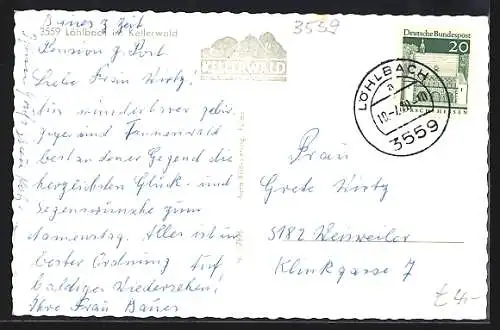 Bauer z Zeit
3559 Löhlbach im Kellerwald
Pension z. Post
3559
KELLERWALD
Liebe Frau Wirtz!
Ein wunderbarer
und Tannenwald
Gegend die
herzlichsten Glück- und
Segenswünsche zum
Namenstag. Alles ist in
bester Ordnung Auf
baldiges Wiedersehen!
Ihre Frau Bauer
Deutsche Bundespost
20
LORSCH/HESSEN
LÖHLBACH
a
3559
Frau
Grete Wirtz
5182 Weisweiler
Klinkgasse 7
€ 4,-